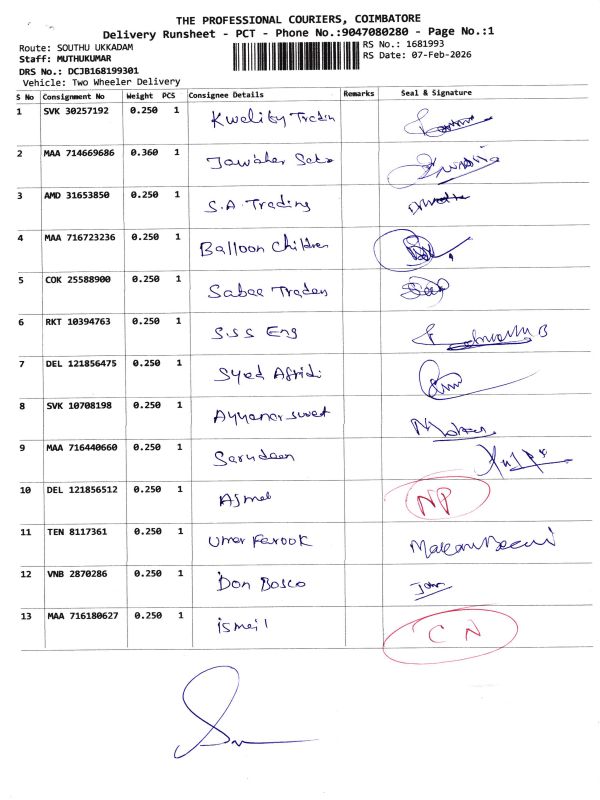 THE PROFESSIONAL COURIERS, COIMBATORE
Delivery Runsheet - PCT - Phone No.:9047080280 - Page No.:1
Route: SOUTHU UKKADAM RS No.: 1681993
Staff: MUTHUKUMAR RS Date: 07-Feb-2026
DRS No.: DCJB168199301
Vehicle: Two Wheeler Delivery
S No Consignment No Weight PCS Consignee Details Remarks Seal & Signature
1 SVK 30257192 0.250 1 Kwality Tradin
2 MAA 714669686 0.360 1 Jawaher
3 AMD 31653850 0.250 1 S.A. Trading
4 MAA 716723236 0.250 1 Balloon Children
5 COK 25588900 0.250 1 Sabee Traden
6 RKT 10394763 0.250 1 S.S.S Eng
7 DEL 121856475 0.250 1 Syed Afridi
8 SVK 10708198 0.250 1 Ayyanar sweet
9 MAA 716440660 0.250 1 Sarudeen
10 DEL 121856512 0.250 1 Ajmal NP
11 TEN 8117361 0.250 1 Umar Farook
12 VNB 2870286 0.250 1 Don Bosco John
13 MAA 716180627 0.250 1 ismeil C N